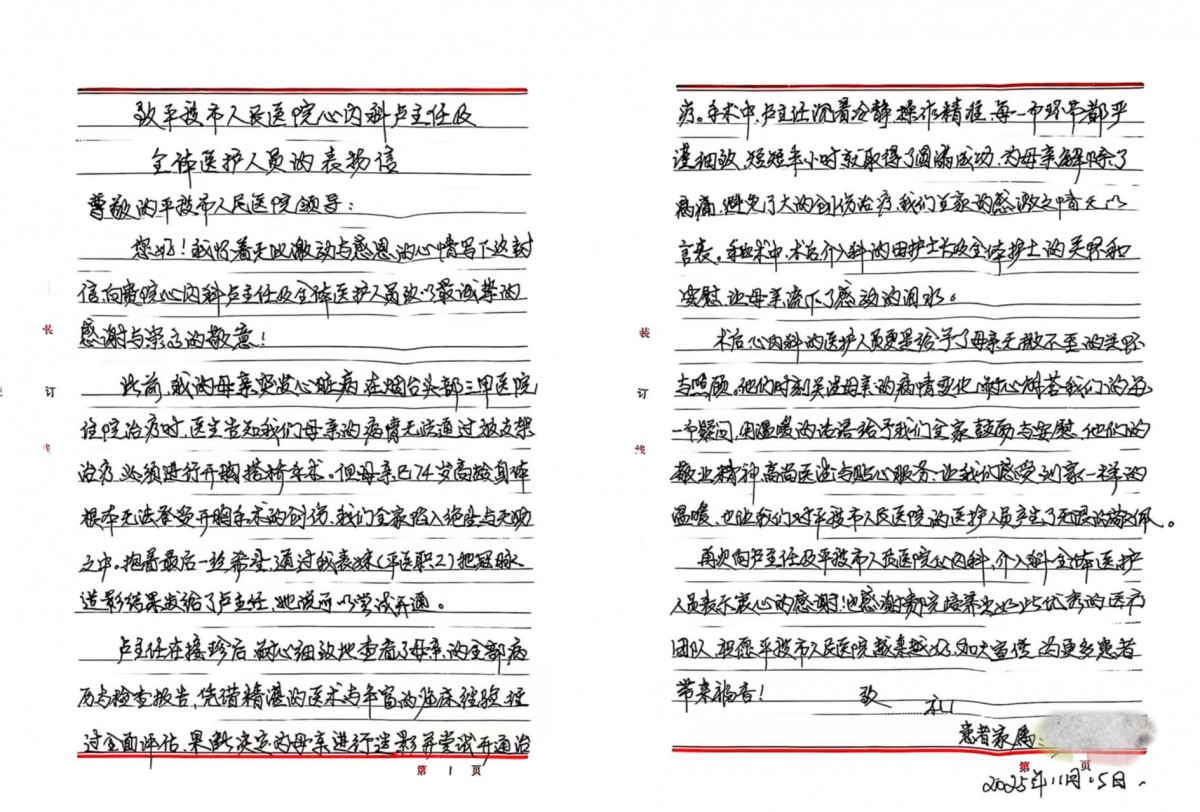 致平度市人民医院心内科卢主任及
全体医护人员的表扬信
尊敬的平度市人民医院领导：
您好！我怀着无比激动与感恩的心情写下这封
信，向贵院心内科卢主任及全体医护人员致以最诚挚的
感谢与崇高的敬意！
此前，我的母亲突发心脏病在烟台头部三甲医院
住院治疗时，医生告知我们母亲的病情无法通过放支架
治疗，必须进行开胸搭桥手术。但母亲已74岁高龄身体
根本无法承受开胸手术的创伤，我们全家陷入绝望与无助
之中。抱着最后一丝希望，通过我表妹（平医职工）把冠脉
造影结果发给了卢主任，她说可以尝试开通。
卢主任在接诊后，耐心细致地查看了母亲的全部病
历与检查报告，凭借精湛的医术与丰富的临床经验，经
过全面评估，果断决定为母亲进行造影并尝试开通治
疗。手术中，卢主任沉着冷静，操作精准，每一个环节都严
谨细致，短短半小时就取得了圆满成功，为母亲解除了
病痛，避免了大的创伤治疗，我们全家的感激之情无以
言表。手术中，术后介入科的田护士长及全体护士的关怀和
安慰，让母亲流下了感动的泪水。
术后心内科的医护人员更是给予了母亲无微不至的关怀
与照顾。他们时刻关注母亲的病情变化，耐心解答我们的每
一个疑问，用温暖的话语给予我们全家鼓励与安慰，他们的
敬业精神，高尚医德与贴心服务，让我们感受到家一样的
温暖，也让我们对平度市人民医院的医护人员产生了无限的敬佩。
再次向卢主任及平度市人民医院心内科，介入科全体医护
人员表示衷心的感谢！也感谢贵院培养出如此优秀的医疗
团队，祝愿平度市人民医院越来越好，加大宣传，为更多患者
带来福音！ 致
礼
患者家属：
2025年11月05日
装
订
线
第 1 页
装
订
线
第 页